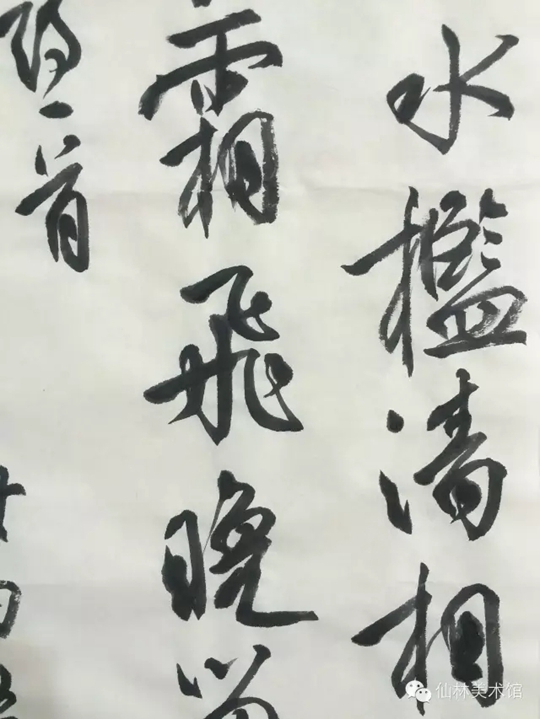 水檻清相
霜飛晚留
詩一首
仙林美术馆